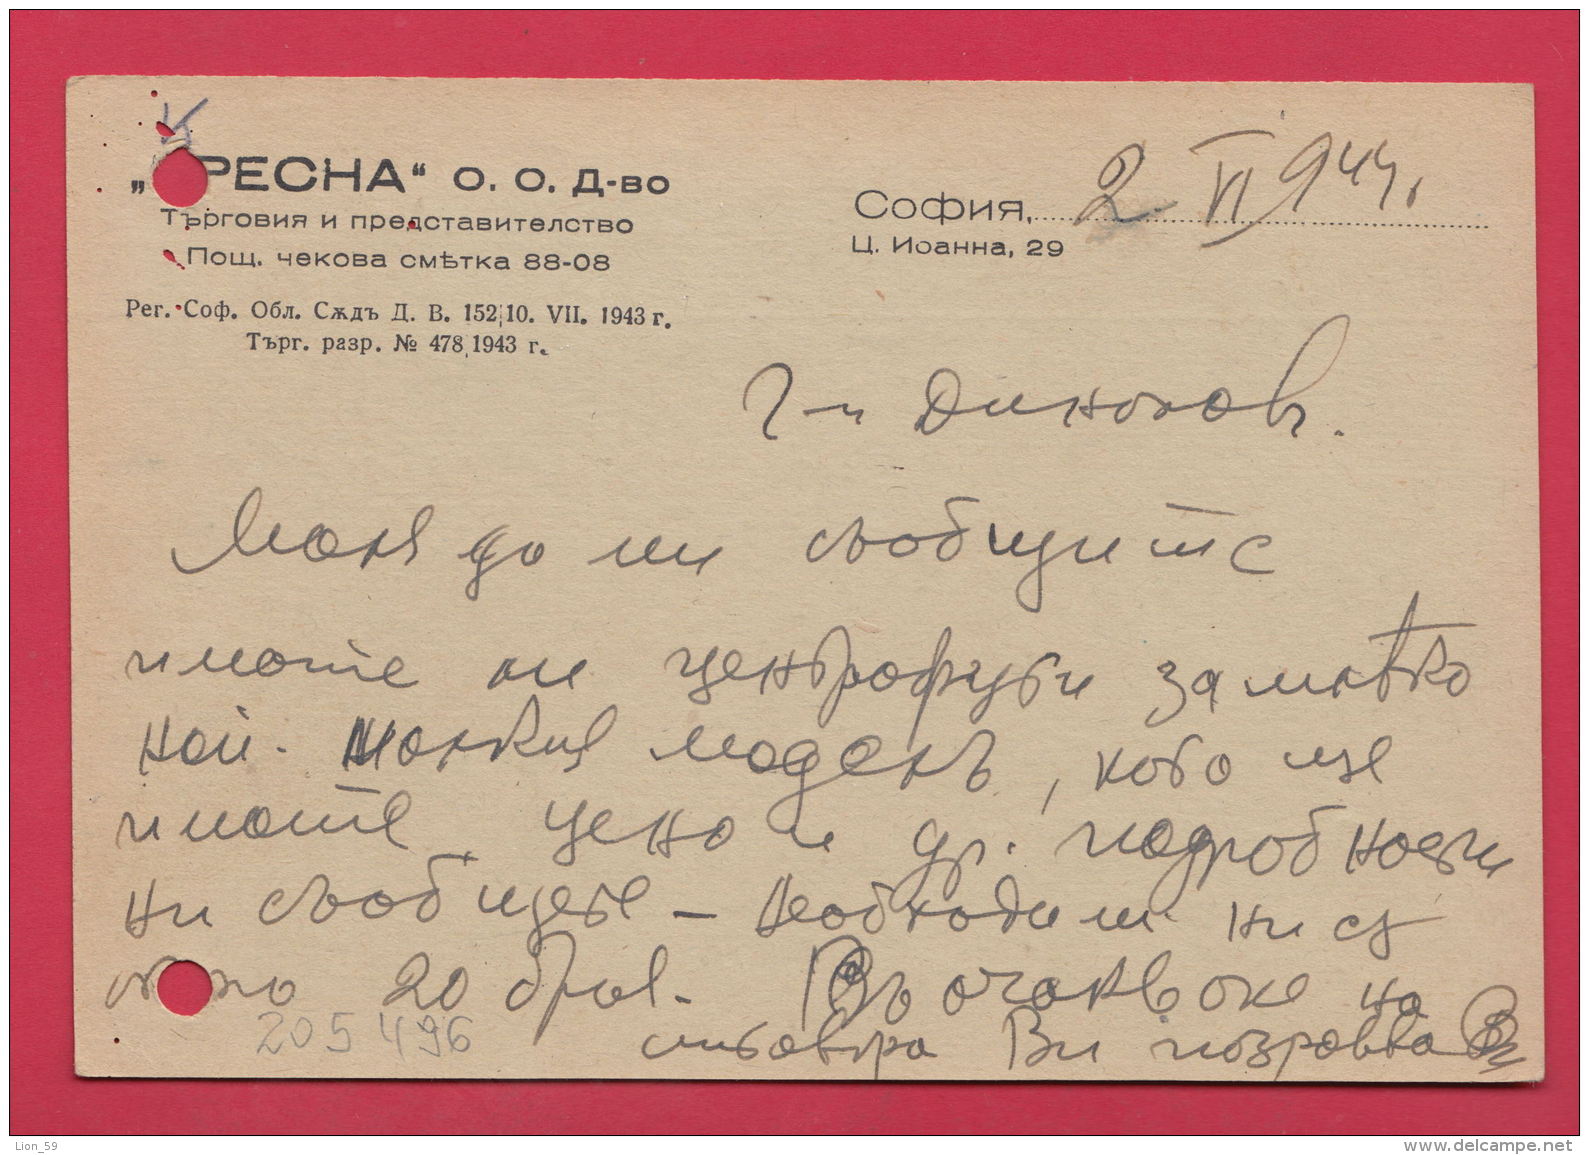 К
„РЕСНА“ О. О. Д-во
Търговия и представителство
Пощ. чекова смѣтка 88-08
Рег. Соф. Обл. Сѫдъ Д. В. 152|10. VII. 1943 г.
Търг. разр. № 478|1943 г.
София, 2 VI 944.
Ц. Иоанна, 29
Г-н Динковъ.
Моля да ми съобщите
имате ли центрофуги за млѣко
най-малкия моделъ, кога ще
имате цена и др. подробности
ни съобщете – Необходими ни сѫ
около 20 броя. Въ очакване на
отговора Ви поздравява Ви
205496
Lion_59
www.delcampe.net